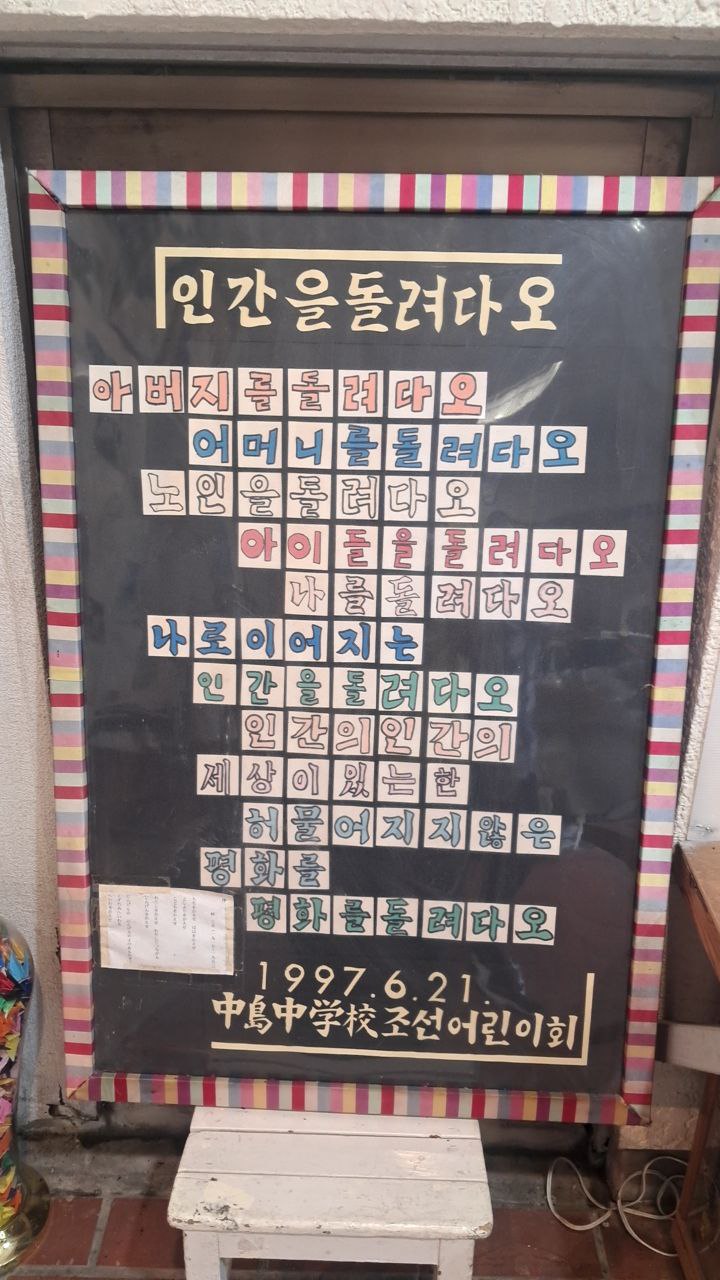 인간을돌려다오
아버지를돌려다오
어머니를돌려다오
노인을돌려다오
아이들을돌려다오
나를돌려다오
나로이어지는
인간을돌려다오
인간의인간의
세상이있는한
허물어지지않은
평화를
평화를돌려다오
1997.6.21.
中島中学校조선어린이회